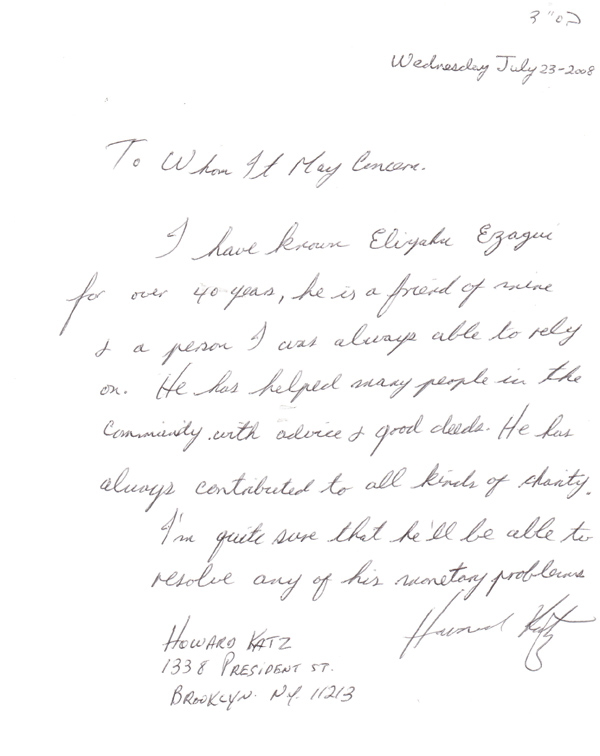 בס"ד
Wednesday July 23-2008
To Whom It May Concern.
I have known Eliyahu Ezagui
for over 40 years, he is a friend of mine
& a person I was always able to rely
on. He has helped many people in the
Community with advice & good deeds. He has
always contributed to all kinds of charity.
I'm quite sure that he'll be able to
resolve any of his monetary problems
Howard Katz
HOWARD KATZ
1338 PRESIDENT ST.
BROOKLYN. NY. 11213